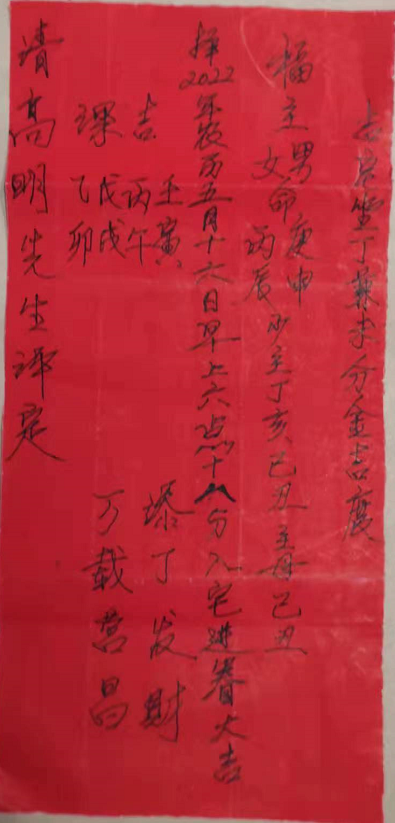 吉宅坐丁兼未分金吉度
福主男命庚申
女命丙辰
少主丁亥己丑主母己丑
择2022年农历五月十六日早上六点十八分入宅进眷大吉
吉
课
壬寅
丙午
戊戌
乙卯
添丁发财
万载昌
请高明先生评定